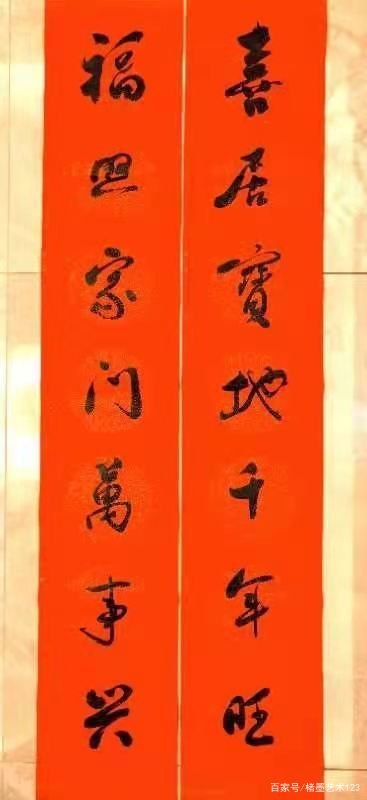 喜居寳地千年旺
福照家门萬事兴
百家号/楮墨艺术123